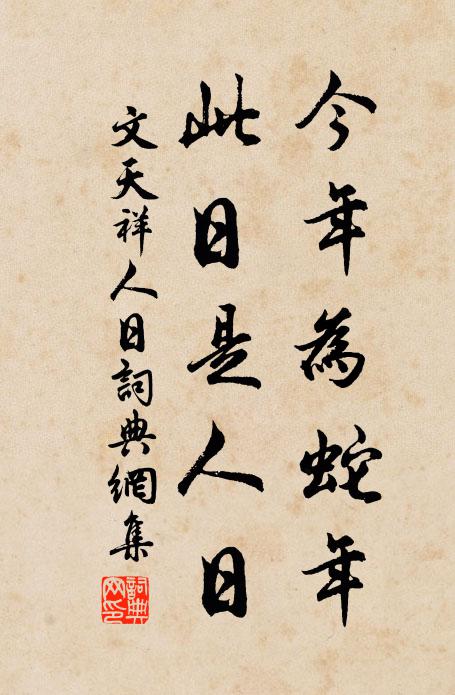 今年為蛇年
此日是人日
文天祥人日詞典網集
詞典
网印